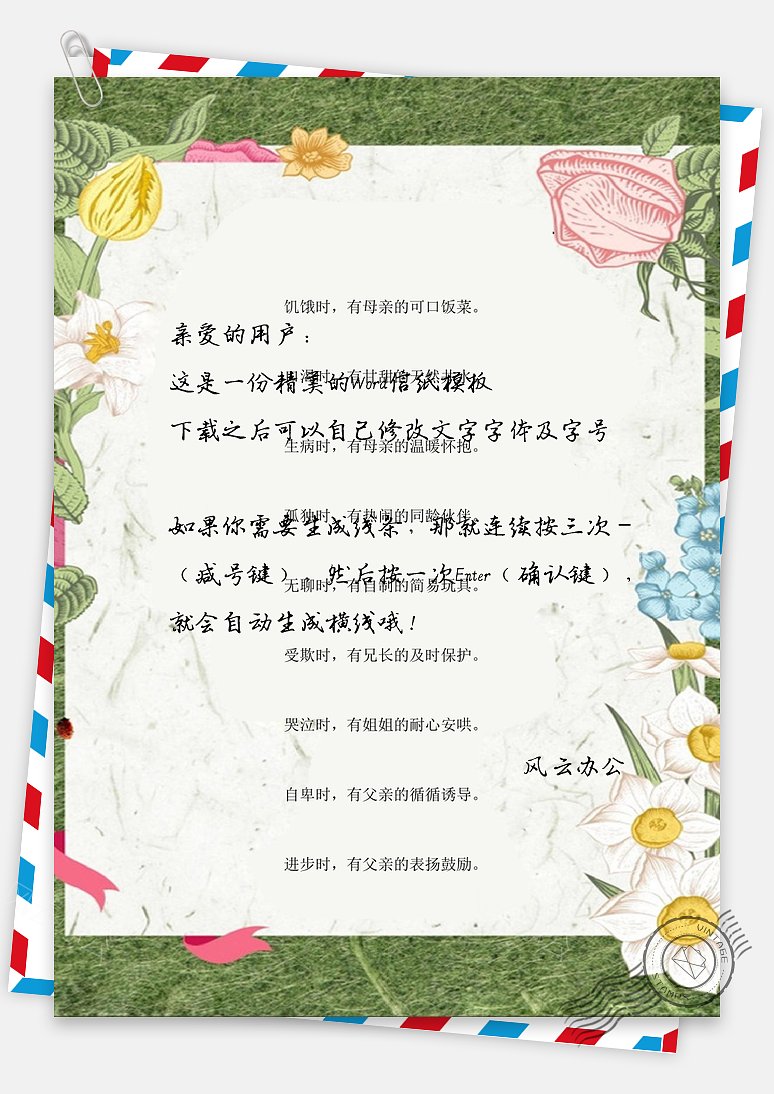 饥饿时，有母亲的可口饭菜。
亲爱的用户：
时，有甘甜的天然
这是一份精美的Word信纸模板
下载之后可以自己修改文字字体及字号
生病时，有母亲的温暖怀抱。
孤独时，有热闹的同龄伙伴。
如果你需要生成线条，那就连续按三次－
（减号键），然后按一次Enter（确认键），
无聊时，有自制的简易玩具。
就会自动生成横线哦！
受欺时，有兄长的及时保护。
哭泣时，有姐姐的耐心安哄。
风云办公
自卑时，有父亲的循循诱导。
进步时，有父亲的表扬鼓励。
VINTAGE
STAMPS